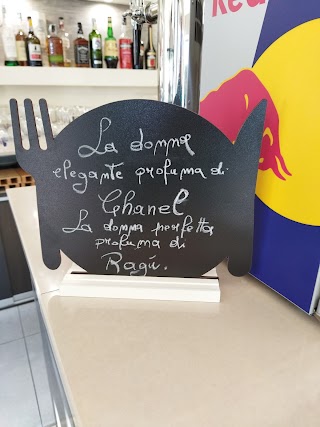 Red
La donna
elegante profuma di
Chanel
La donna perfetta
profuma di
Ragù.